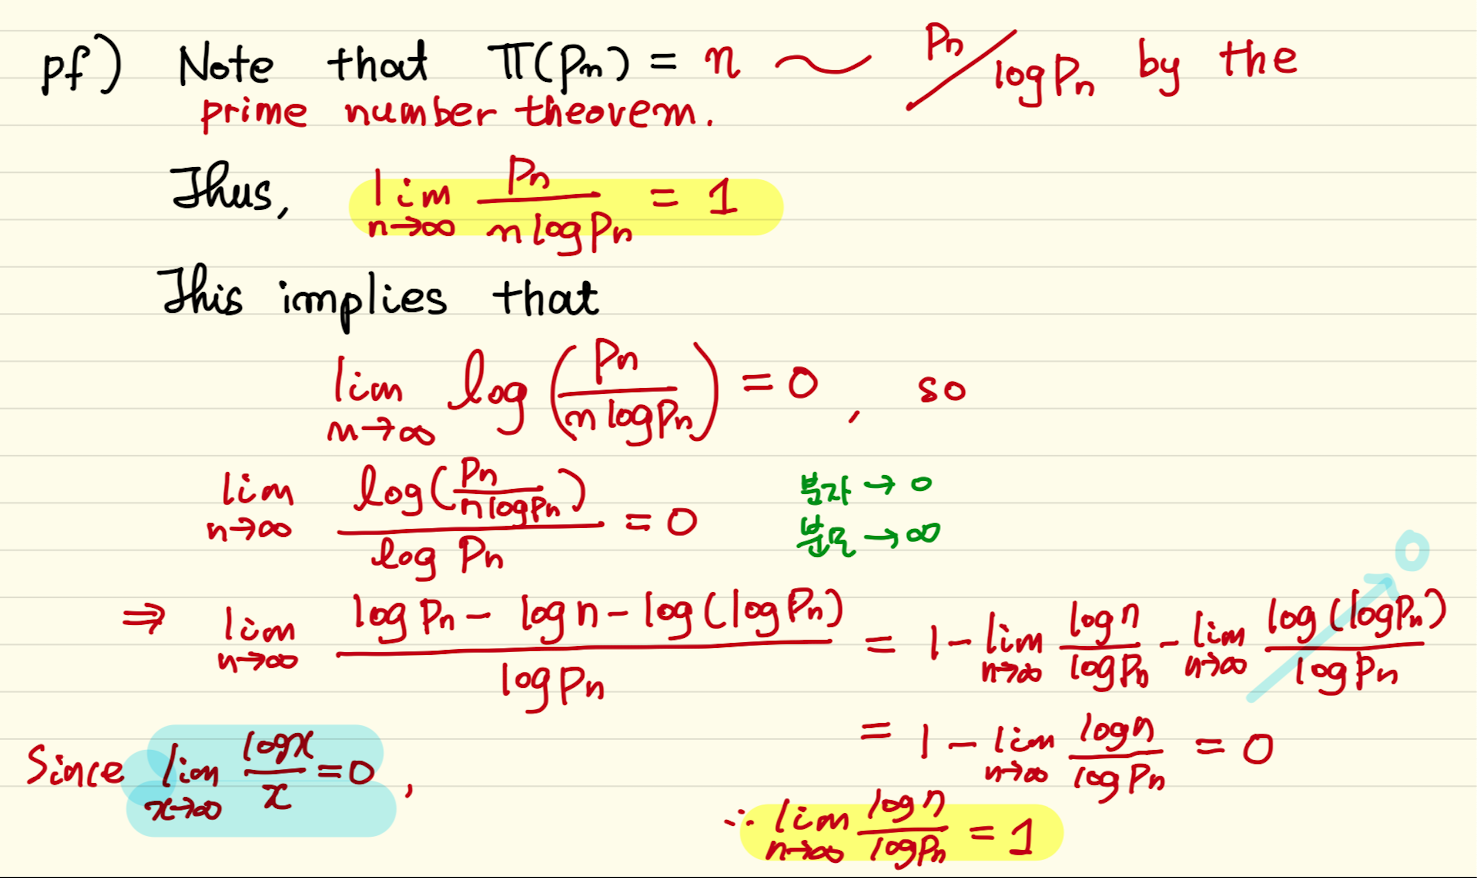 pf) Note that π(Pn) = n ~ Pn/log Pn by the
prime number theorem.
Thus, lim n→∞ Pn/(n log Pn) = 1
This implies that
lim n→∞ log(Pn/(n log Pn)) = 0, so
lim n→∞ log(Pn/(n log Pn))/log Pn = 0 분자 → 0
분모 → ∞
⇒ lim n→∞ (log Pn - log n - log(log Pn))/log Pn = 1 - lim n→∞ log n/log Pn - lim n→∞ log(log Pn)/log Pn → 0
= 1 - lim n→∞ log n/log Pn = 0
Since lim x→∞ log x/x = 0,
∴ lim n→∞ log n/log Pn = 1